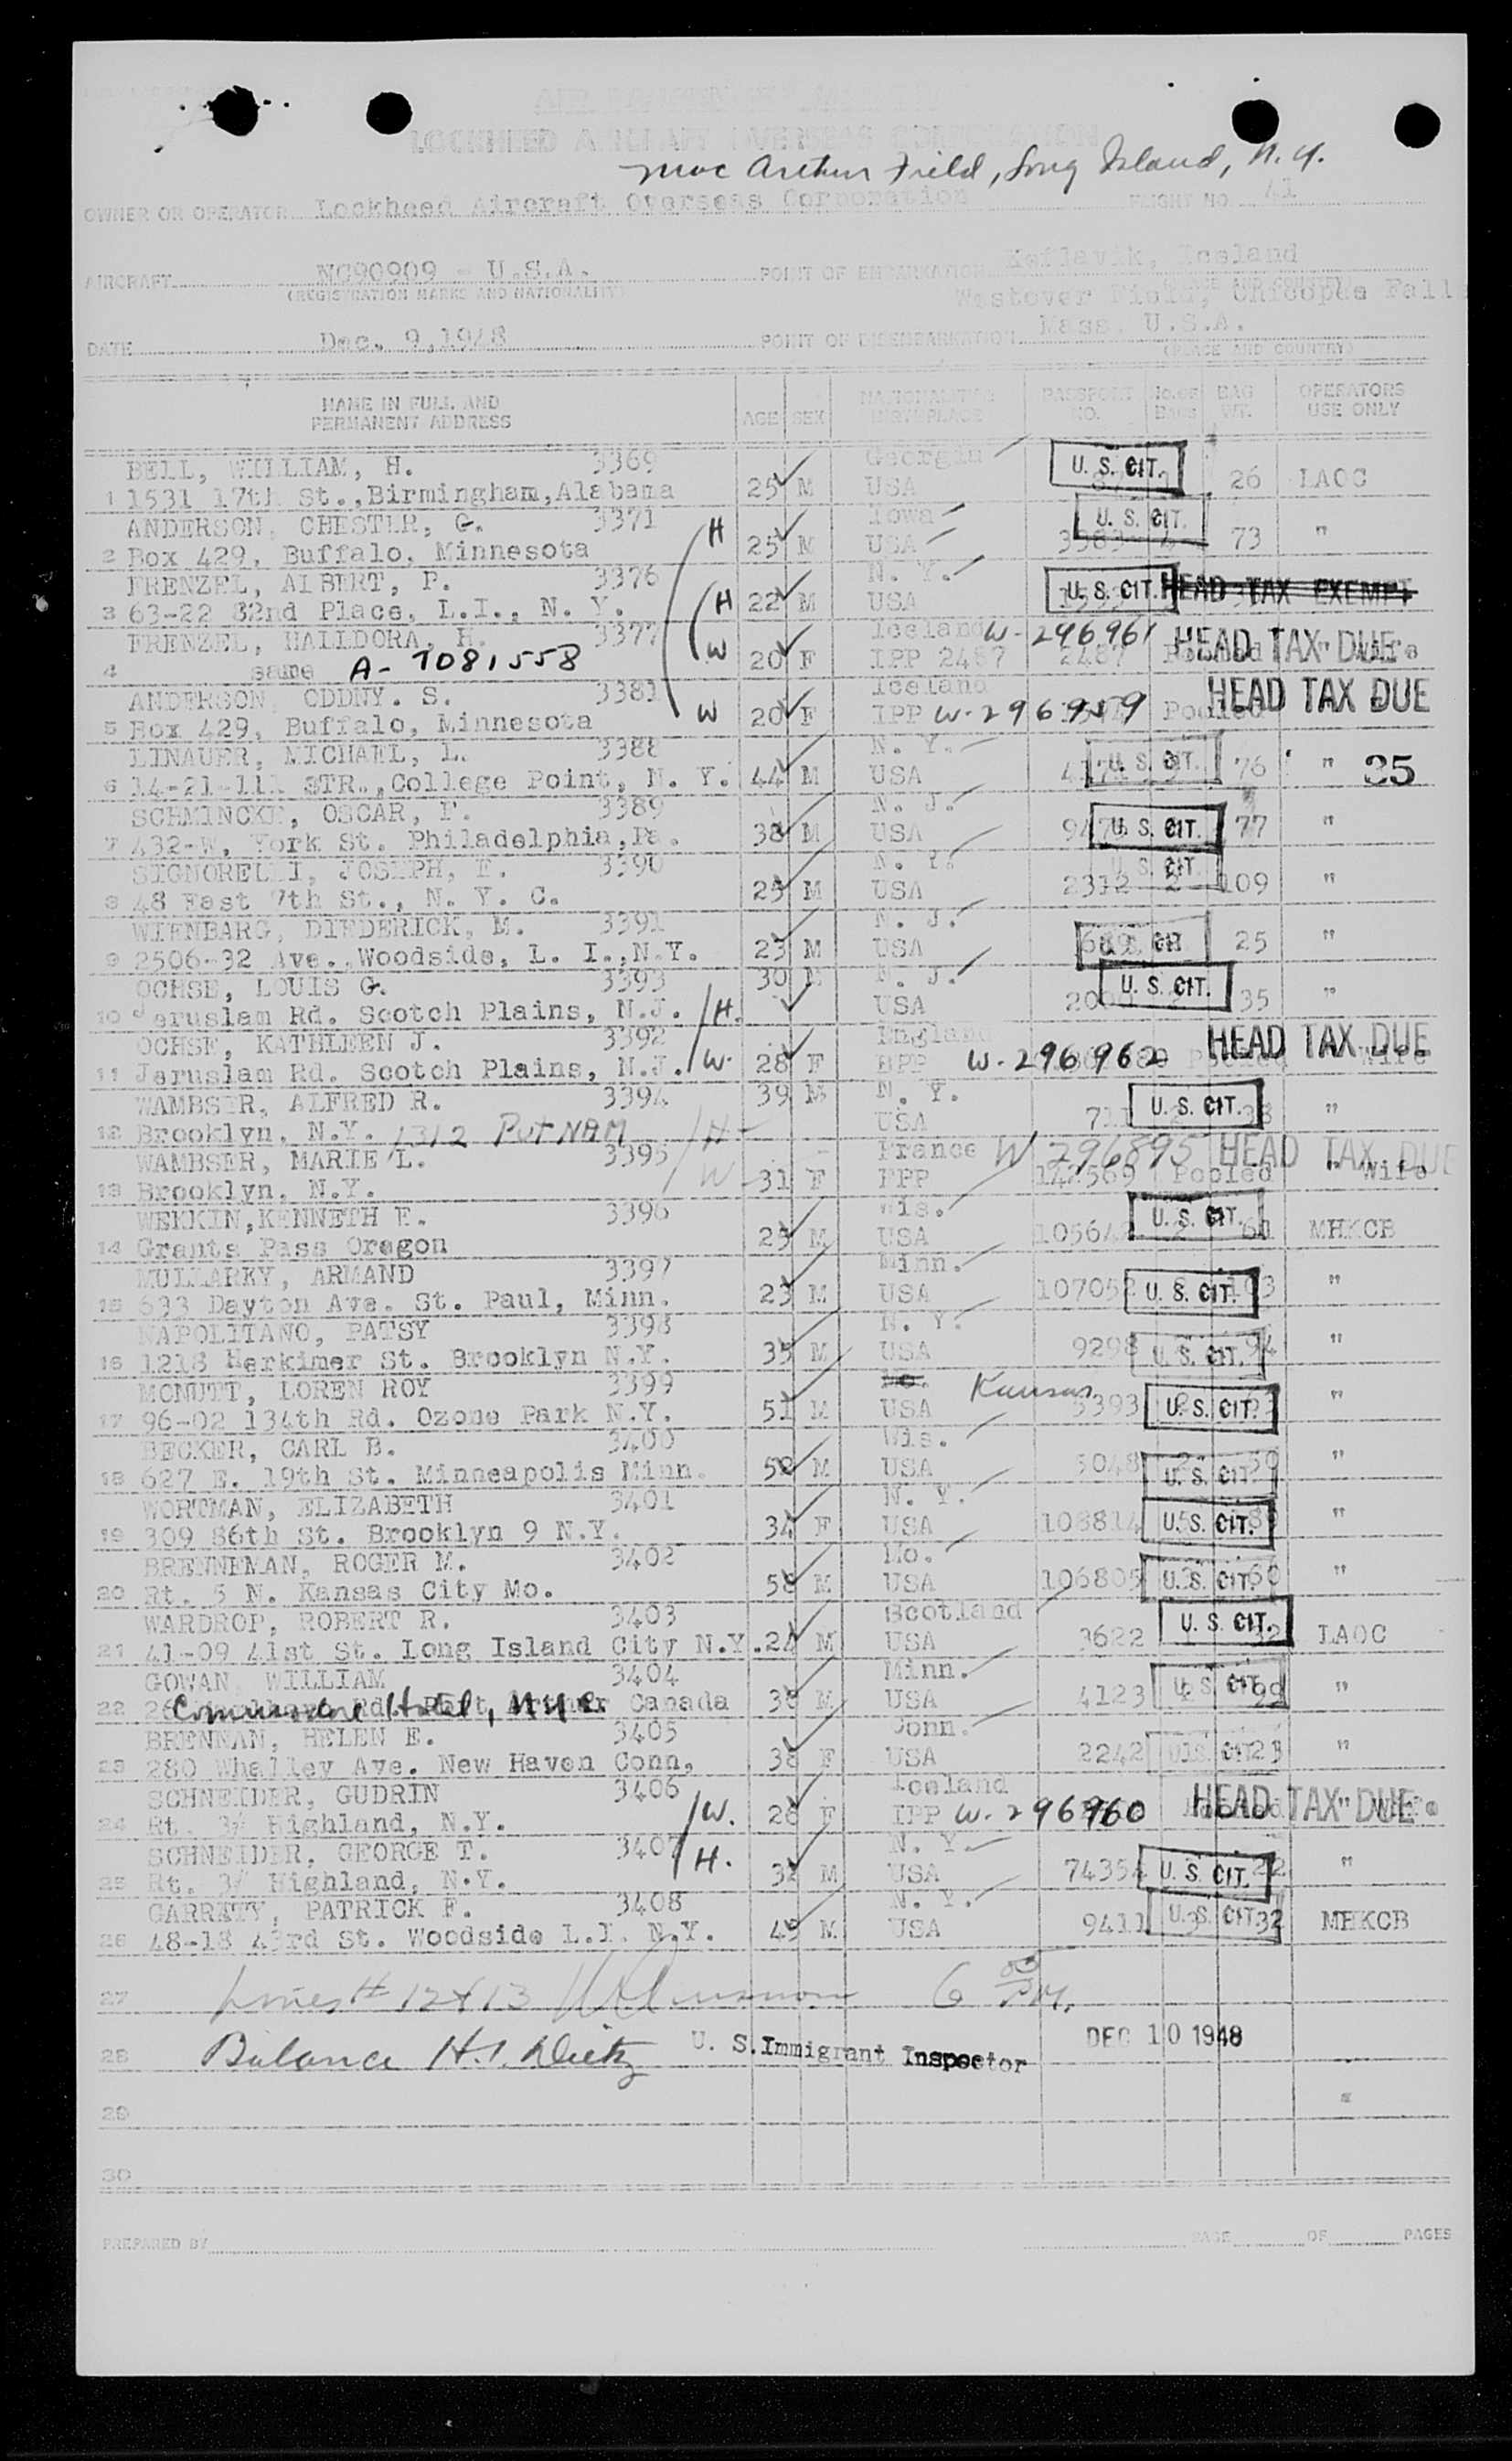 AIR PASSENGER MANIFEST
LOCKHEED AIRCRAFT OVERSEAS CORPORATION
Mac Arthur Field, Long Island, N.Y.
OWNER OR OPERATOR Lockheed Aircraft Overseas Corporation FLIGHT NO. 41
AIRCRAFT NC90909 - U.S.A. POINT OF EMBARKATION Keflavik, Iceland
(REGISTRATION MARKS AND NATIONALITY) (PLACE AND COUNTRY)
Westover Field, Chicopee Falls
DATE Dec. 9, 1948 POINT OF DISEMBARKATION Mass. U.S.A.
(PLACE AND COUNTRY)
NAME IN FULL AND PERMANENT ADDRESS AGE SEX NATIONALITY BIRTHPLACE PASSPORT NO. No. OF BAGS BAG WT. OPERATORS USE ONLY
BELL, WILLIAM, H. 3369 Georgia U. S. CIT.
1 1531 17th St., Birmingham, Alabama 25 M USA 26 LAOC
ANDERSON, CHESTER, G. 3371 H Iowa U. S. CIT.
2 Box 429, Buffalo, Minnesota 25 M USA 73 "
FRENZEL, ALBERT, P. 3376 N. Y. U. S. CIT. HEAD TAX EXEMPT
3 63-22 82nd Place, L.I., N. Y. H 22 M USA
FRENZEL, HALLDORA, H. 3377 Iceland W-296961 HEAD TAX DUE
4 same A-7081558 W 20 F IPP 2487 2487 Pooled " Wife
ANDERSON, ODDNY. S. 3381 Iceland HEAD TAX DUE
5 Box 429, Buffalo, Minnesota W 20 F IPP W-296959 Pooled
LINAUER, MICHAEL, L. 3388 N. Y. U. S. CIT.
6 14-21-111 STR., College Point, N. Y. 44 M USA 76 " 25
SCHMINCKE, OSCAR, F. 3389 N. J.
7 432-W, York St. Philadelphia, Pa. 38 M USA U. S. CIT. 77 "
SIGNORELLI, JOSEPH, F. 3390 N. Y. U. S. CIT.
8 48 East 7th St., N. Y. C. 25 M USA 2312 2 109 "
WIENBARG, DIEDERICK, M. 3391 N. J.
9 2506-32 Ave., Woodside, L. I., N.Y. 23 M USA 25 "
OCHSE, LOUIS G. 3393 30 M N. J. U. S. CIT.
10 Jeruslam Rd. Scotch Plains, N.J. H. USA 35 "
OCHSE, KATHLEEN J. 3392 England HEAD TAX DUE
11 Jeruslam Rd. Scotch Plains, N.J. W. 28 F BPP W-296962 Pooled " Wife
WAMBSER, ALFRED R. 3394 39 M N. Y. U. S. CIT.
12 Brooklyn, N.Y. 1312 PUTNAM H USA 38 "
WAMBSER, MARIE L. 3395 France W 296895 HEAD TAX DUE
13 Brooklyn, N.Y. W 31 F FPP 142569 Pooled " Wife
WEKKIN, KENNETH E. 3396 Wis. U. S. CIT.
14 Grants Pass Oregon 25 M USA 61 MHKCB
MULLARKY, ARMAND 3397 Minn.
15 633 Dayton Ave. St. Paul, Minn. 23 M USA 107052 U. S. CIT. "
NAPOLITANO, PATSY 3398 N. Y.
16 1218 Herkimer St. Brooklyn N.Y. 35 M USA 9298 U. S. CIT. 94 "
MCNUTT, LOREN ROY 3399 Mo. Kansas
17 96-02 134th Rd. Ozone Park N.Y. 51 M USA U. S. CIT. "
BECKER, CARL B. 3400 Wis.
18 627 E. 19th St. Minneapolis Minn. 52 M USA 5048 U. S. CIT. "
WORTMAN, ELIZABETH 3401 N. Y.
19 309 86th St. Brooklyn 9 N.Y. 34 F USA 108814 U. S. CIT. "
BRENNEMAN, ROGER M. 3402 Mo.
20 Rt. 5 N. Kansas City Mo. 58 M USA 106805 U. S. CIT. 60 "
WARDROP, ROBERT R. 3403 Scotland U. S. CIT.
21 41-09 41st St. Long Island City N.Y. 24 M USA 3622 LAOC
GOWAN, WILLIAM 3404 Minn. U. S. CIT.
22 Commodore Hotel, NYC Canada 38 M USA 4123 "
BRENNAN, HELEN E. 3405 Conn.
23 280 Whalley Ave. New Haven Conn, 38 F USA 2242 U. S. CIT. 23 "
SCHNEIDER, GUDRIN 3406 Iceland HEAD TAX DUE
24 Rt. 3# Highland, N.Y. W. 26 F IPP W-296960 " Wife
SCHNEIDER, GEORGE T. 3407 H. N. Y.
25 Rt. 3# Highland, N.Y. 32 M USA 74354 U. S. CIT. 22 "
GARRATY, PATRICK F. 3408 N. Y. U. S. CIT.
26 48-18 43rd St. Woodside L.I. N.Y. 45 M USA 9411 32 MHKCB
27 Lines # 12 & 13 6 00 P.M.
28 Balance H. J. Dietz U. S. Immigrant Inspector DEC 10 1948
29
30
PREPARED BY PAGE OF PAGES